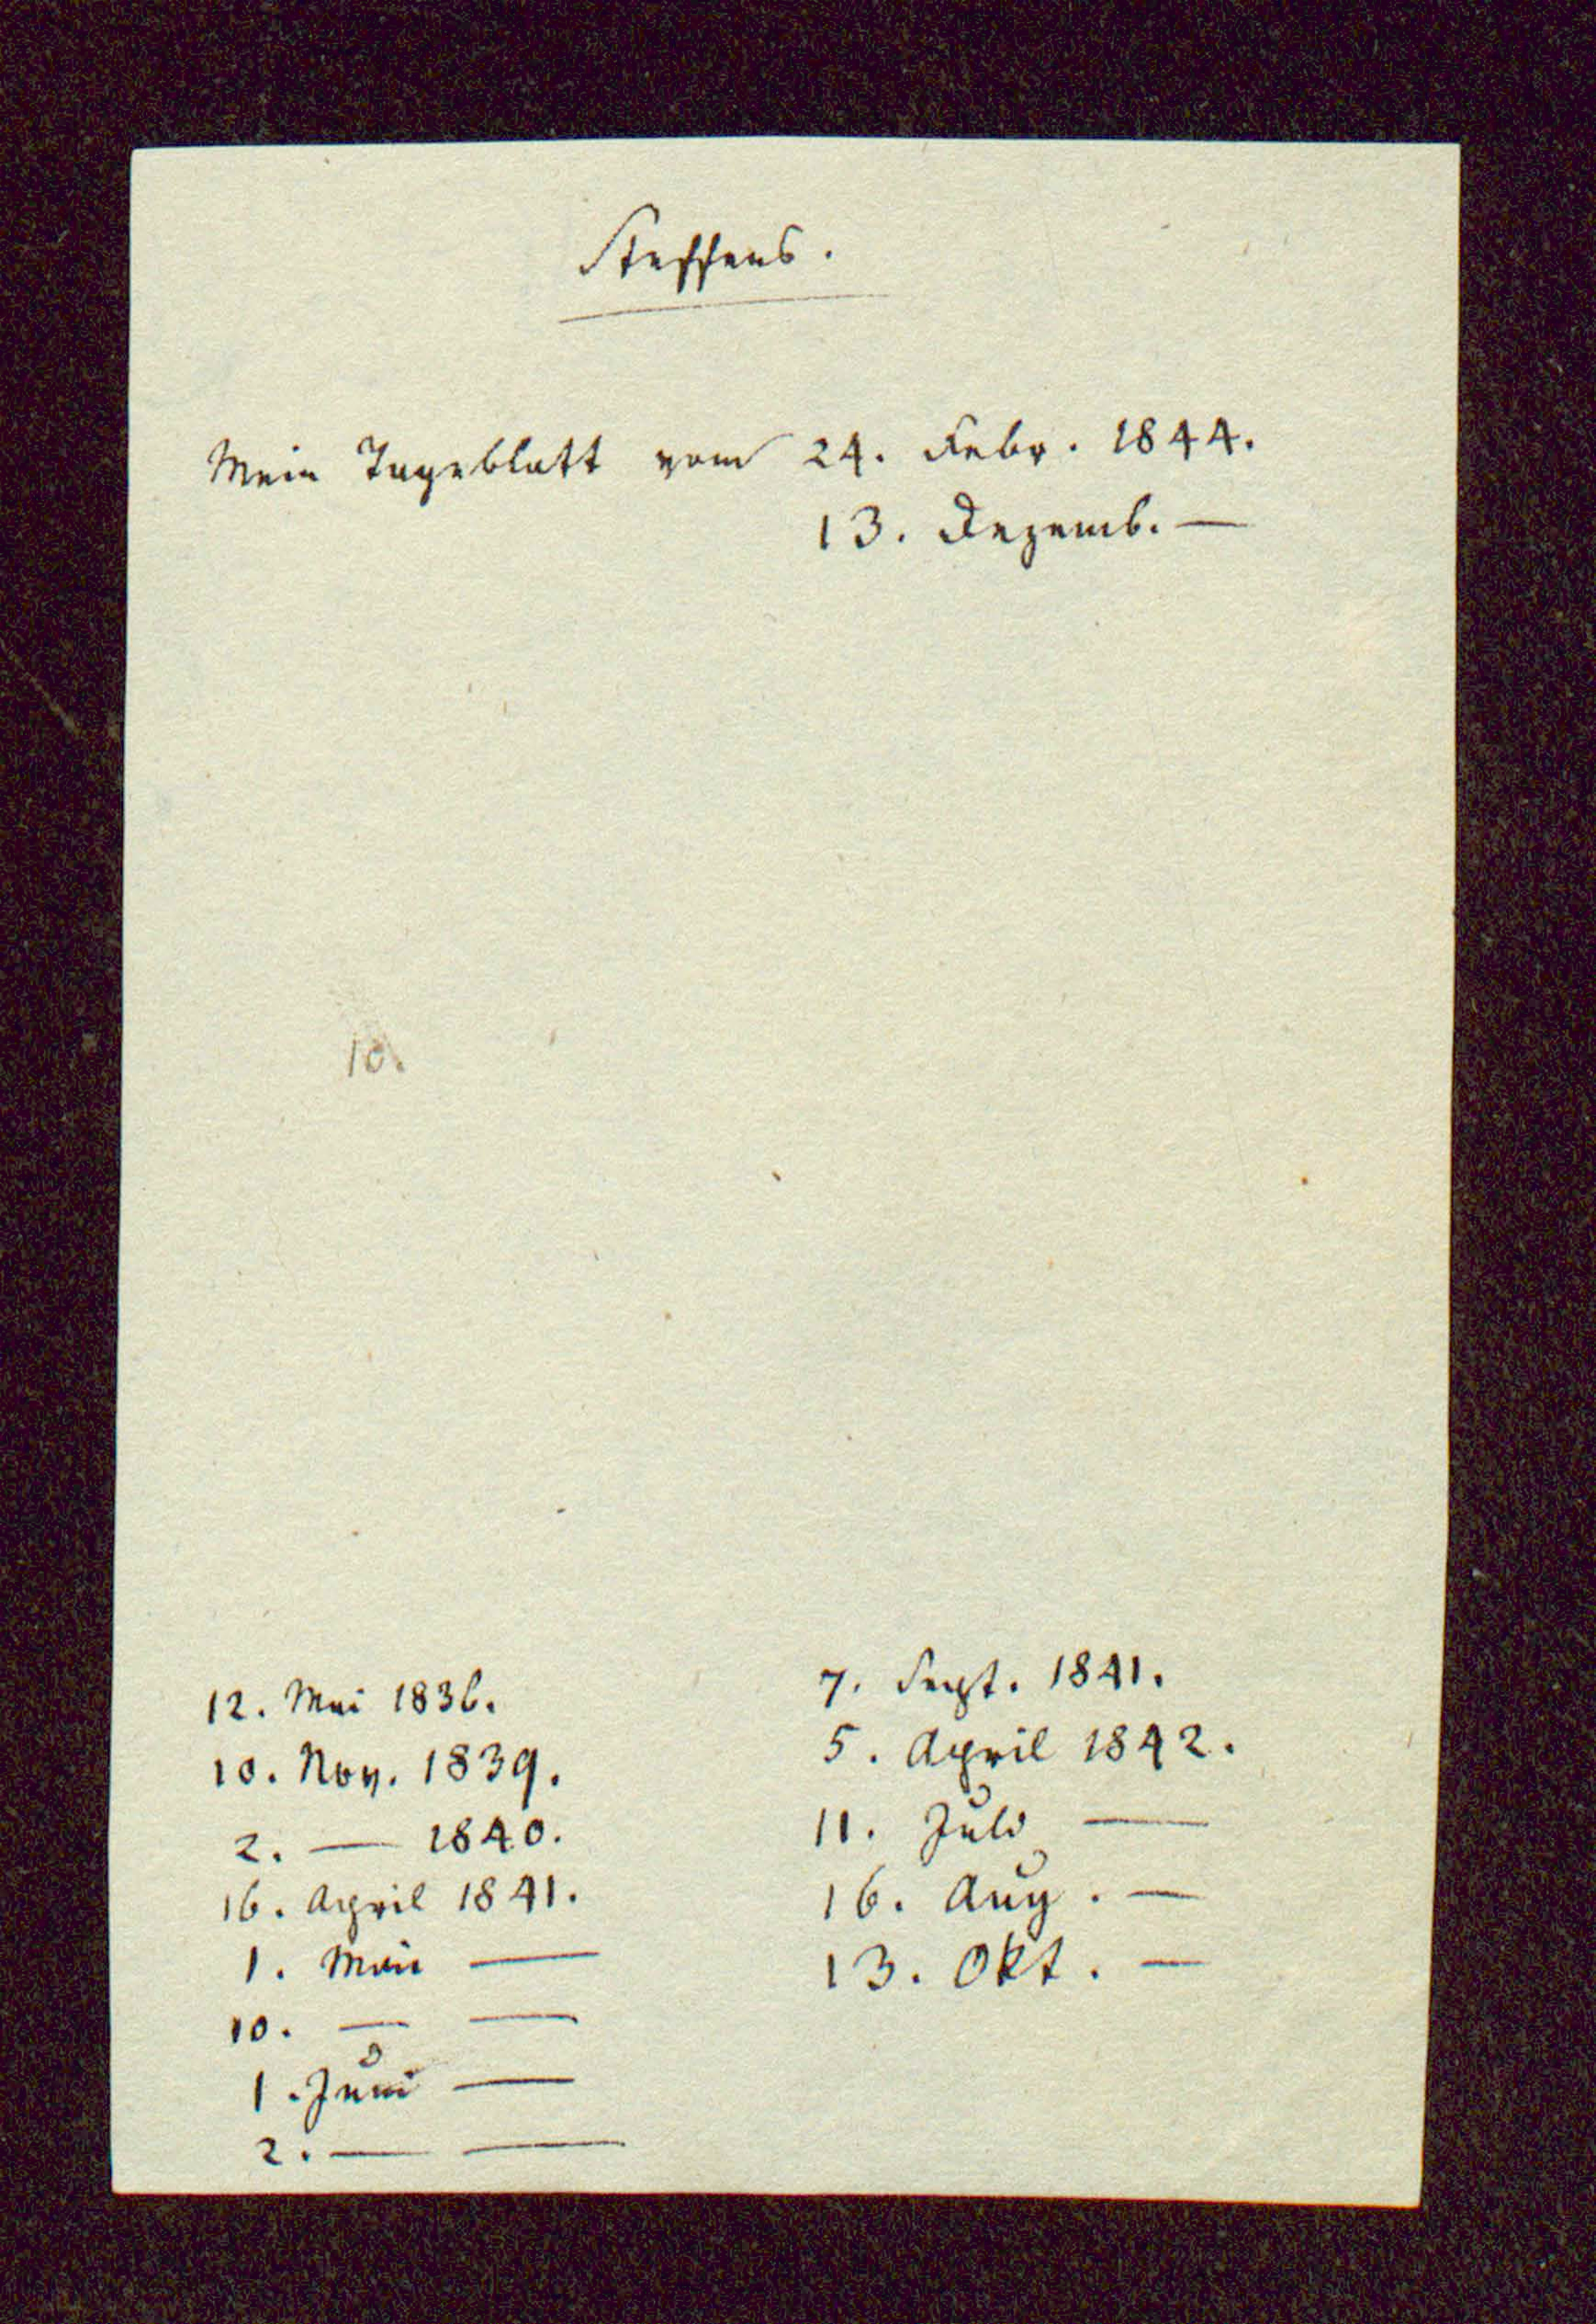 Steffens.
Mein Tageblatt vom 24. Febr. 1844.
13. Dezemb. —
10.
12. Mai 1836.
10. Nov. 1839.
2. — 1840.
16. April 1841.
1. Mai —
10. — —
1. Juni —
2. — —
7. Sept. 1841.
5. April 1842.
11. Juli —
16. Aug. —
13. Okt. —